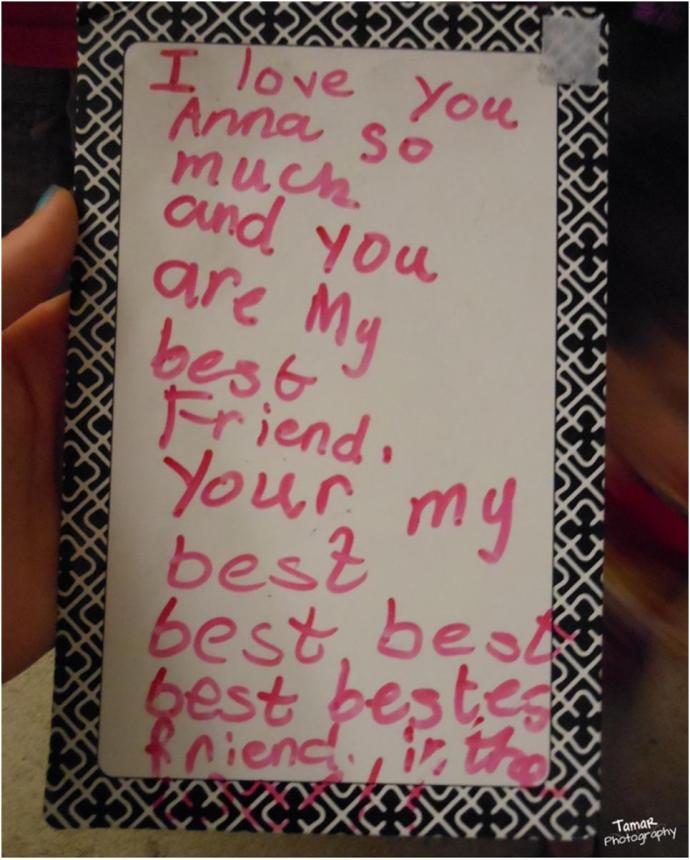 I love you
Anna so
much
and you
are My
best
Friend.
Your my
best
best best
best bestes
friend. in the
Tamar
Photography